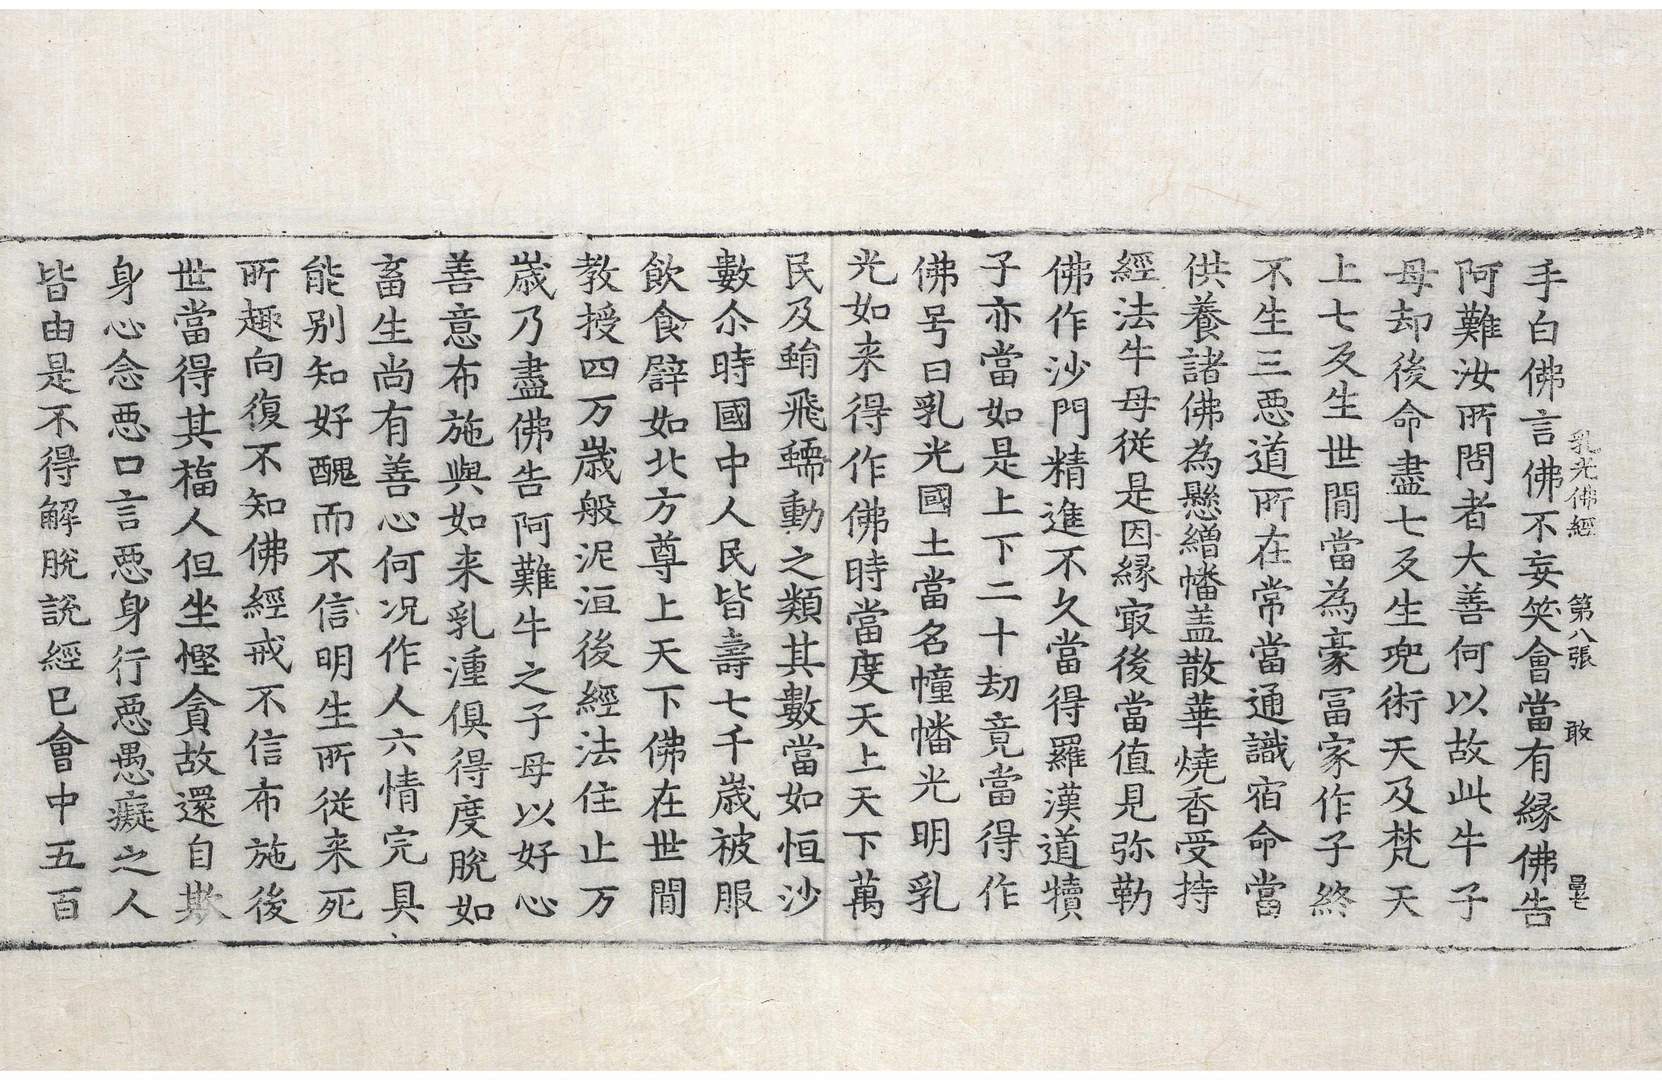 乳光佛經 第八張 敢
手白佛言佛不妄笑會當有緣佛告
阿難汝所問者大善何以故此牛子
母却後命盡七反生兜術天及梵天
上七反生世間當為豪冨家作子終
不生三惡道所在常當通識宿命當
供養諸佛為懸繒幡盖散華燒香受持
經法牛母從是因緣㝡後當值見弥勒
佛作沙門精進不久當得羅漢道犢
子亦當如是上下二十劫竟當得作
佛号曰乳光國土當名幢幡光明乳
光如来得作佛時當度天上天下萬
民及蜎飛蠕動之類其數當如恒沙
數尒時國中人民皆壽七千歲被服
飲食譬如北方尊上天下佛在世間
教授四万歲般泥洹後經法住止万
歲乃盡佛告阿難牛之子母以好心
善意布施與如来乳湩俱得度脫如
畜生尚有善心何况作人六情完具
能别知好醜而不信明生所從来死
所趣向復不知佛經戒不信布施後
世當得其福人但坐慳貪故還自欺
身心念惡口言惡身行惡愚癡之人
皆由是不得解脫說經已會中五百